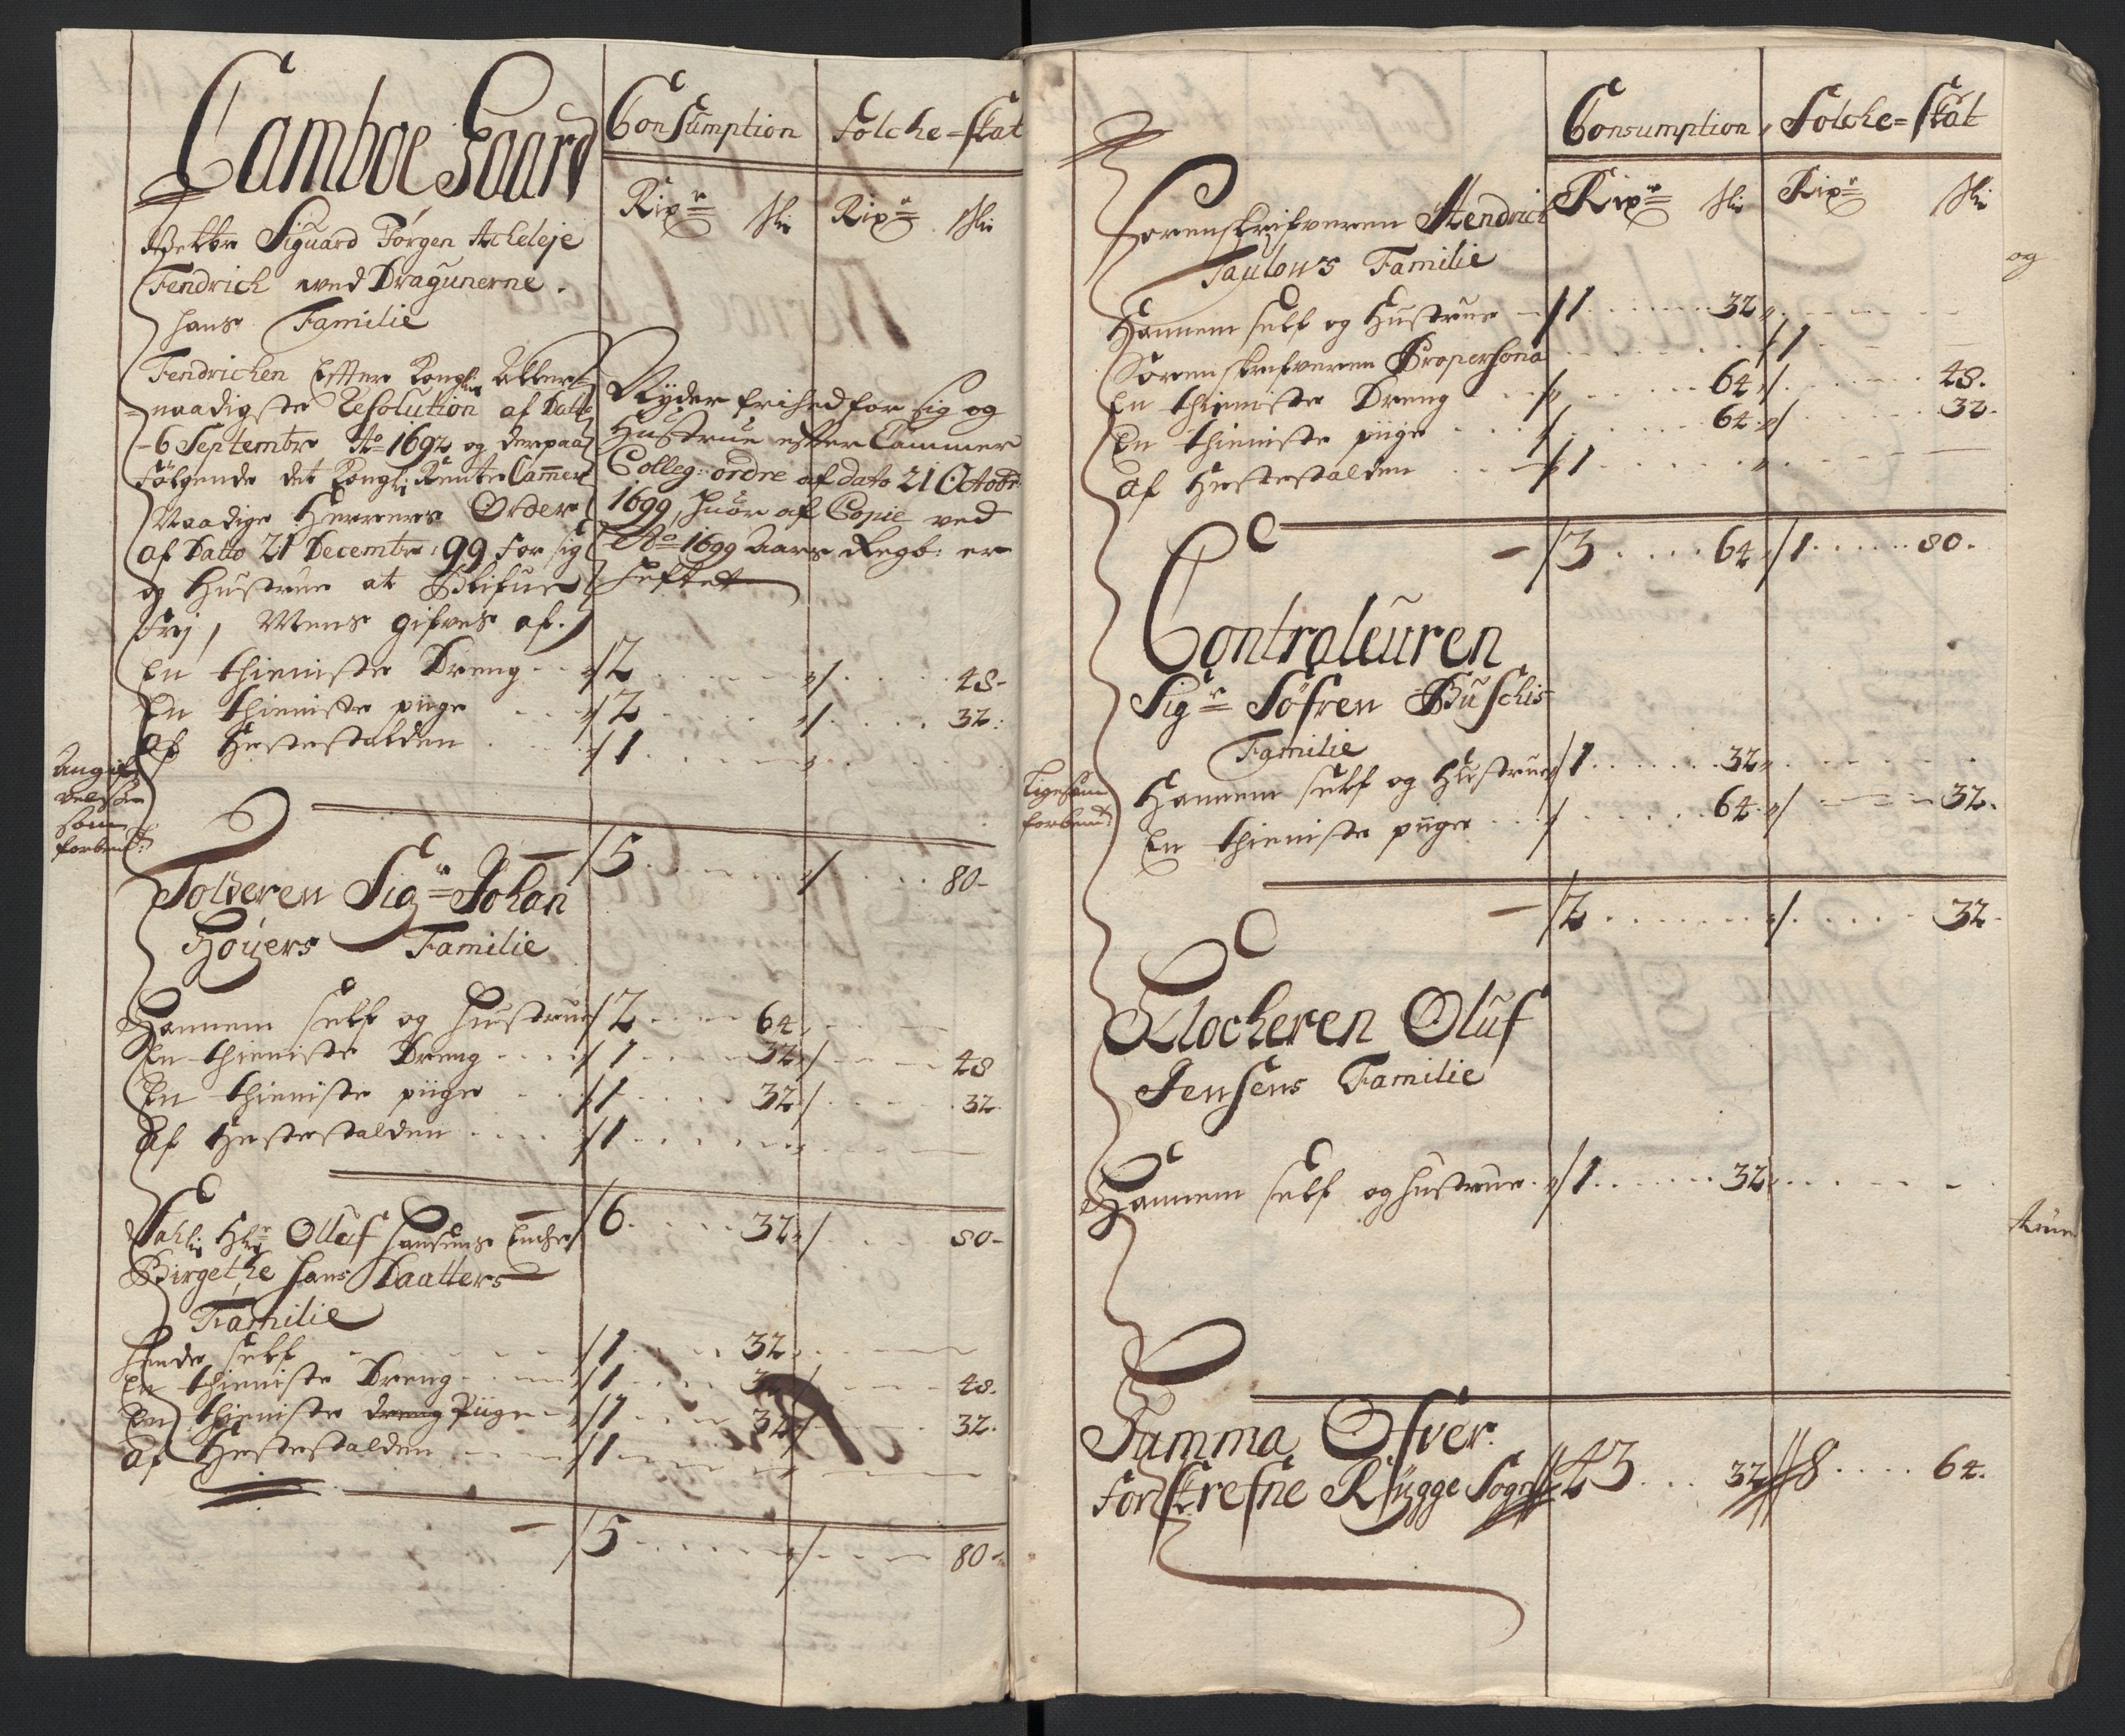 Camboe Gaard
Consumption
Folche-Skat
Rixr
ski
Rixr
ski
Siguard Jørgen Acheleje
Fendrich wed Dragunerne.
hans Familie
Fendrichen Efter Kongl: Aller-
naadigste Resolution af Dato
6 Septembr Ao 1692 og derpaa
følgende det Kongl: Rente Cam̅er
Naadige Herrers Order
af Dato 21 Decembr: 99 for sig
og Hustrue at Blifue
frj, Mens gifves af.
Nyder frihed for sig og
Hustrue efter Cammer
Colleg: ordre af dato 21 Octobr:
1699, huor af Copie ved
Ao 1699 Aars Regb: er
heftet
En thieniste Dreng 2 48-
En thieniste piige 2 32:
Af Hestestalden 1
som
forbemt:
5 80-
Tolderen Sigr Johan
Høyers Familie
Hannem self og hustrue 2 64
En thieniste Dreng 1 32 48
En thieniste piige 1 32 32
Af Hestestalden 1
6 32 80-
Sahlig Hr Oluf Hansens Enche
Birgethe Hans Daatters
Familie
Hende self 1 32
En thieniste Dreng 1 32 48.
En thieniste dreng Piige 1 32 32.
Af Hestestalden 1
5 80-
Consumption
Folche-Skat
Rixr
ski
Rixr
ski
Sorenskrifveren Hendrich
Taulows Familie
Hannem self og Hustrue 1 32
Sorenskrifveren Propersona 1
En thieniste Dreng 64 48.
En thieniste piige 64 32-
af Hestestalden 1
3 64 1 80-
Contraleuren
Sigr Søfren Buschis
Familie
Ligesom
forbemt:
Hannem self og Hustrue 1 32
En thieniste piige 64 32.
2 32-
Klocheren Oluf
Jensens Familie
Hannem self og hustrue 1 32
Summa Ofver
forskrefne Rygge Sogn 43 32 8 64.
og